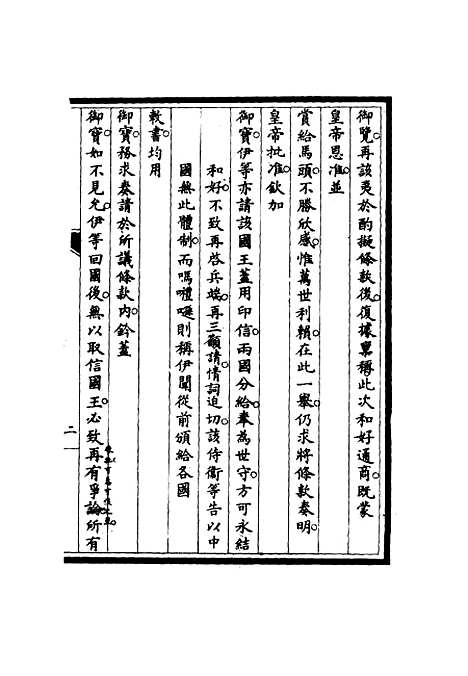 御覽再該夷於酌擬條款後復據稟稱此次和好通商既蒙
皇帝恩准並
賞給馬頭不勝欣感惟萬世利賴在此一舉仍求將條款奏明
皇帝批准欽加
御寶伊等亦請該國王蓋用印信兩國分給奉為世守方可永結
和好不致再啓兵端再三籲請情詞迫切該侍衛等告以中
國無此體制而嗎禮遜則稱伊聞從前頒給各國
敕書均用
御寶務求奏請於所議條款內鈐蓋
御寶如不見允伊等回國後無以取信國王必致再有爭論所有
二